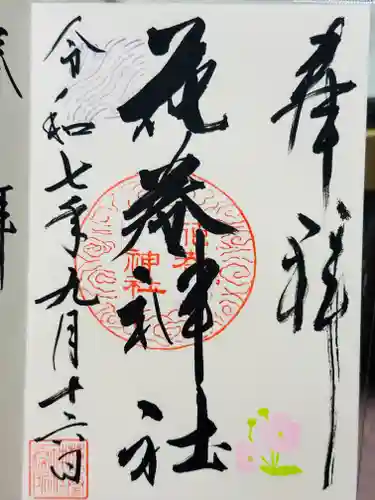 奉拝
花巻神社
令和七年九月十六日
神社
拝